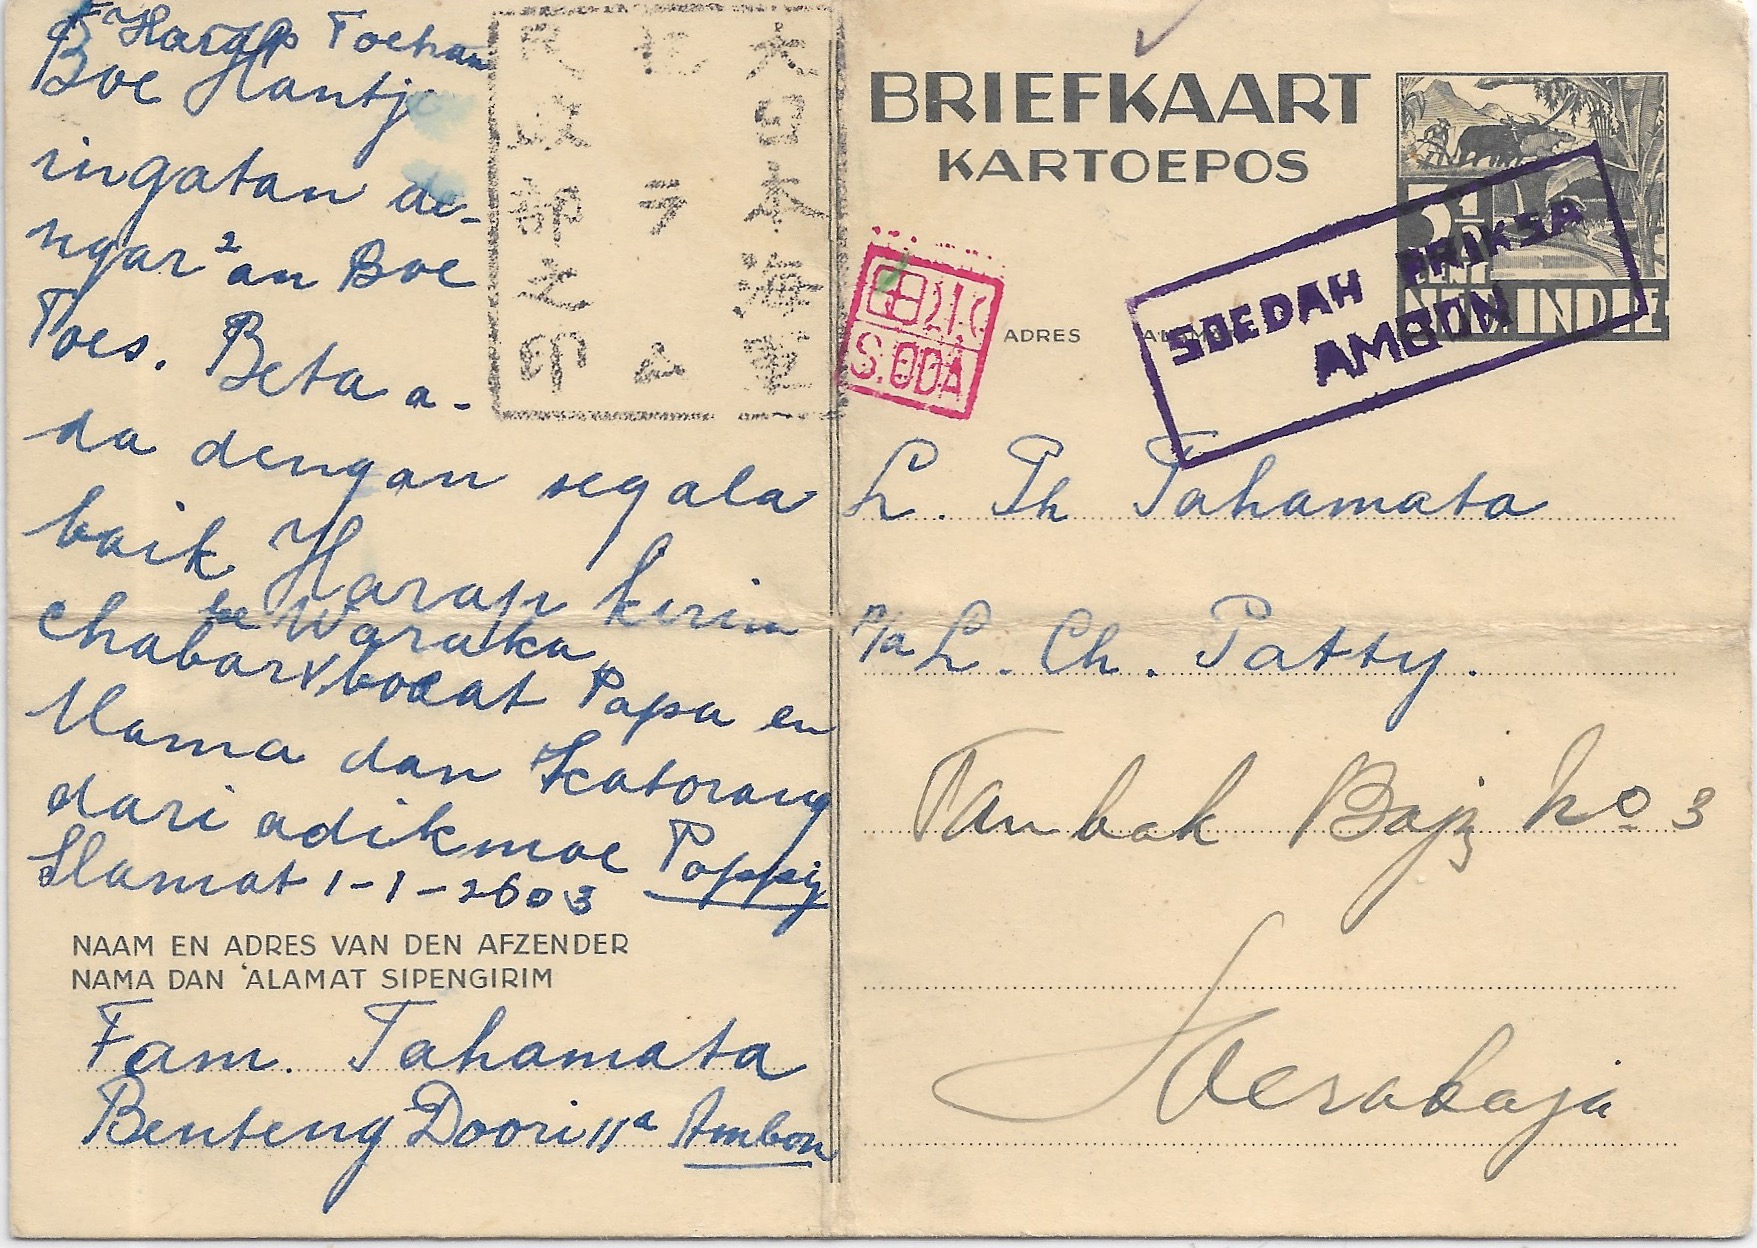 Harap Toehan
Boe Hantje
ingatan de-
ngar²an Boe
Toes. Beta a-
da dengan segala
baik Harap kirim
ke Waraka
chabar boeat Papa en
Mama dan Katorang
dari adikmoe Poppy
Slamat 1-1-2603
NAAM EN ADRES VAN DEN AFZENDER
NAMA DAN 'ALAMAT SIPENGIRIM
Fam. Tahamata
Benteng Doori 11a Ambon
大日本海軍
民政部之印
BRIEFKAART
KARTOEPOS
3½
CENT
NED. INDIE
SOEDAH PRIKSA
AMBON
S. ODA
ADRES
L. Th Tahamata
p/a L. Ch. Patty.
Tambak Bajz No 3
Soerabaja